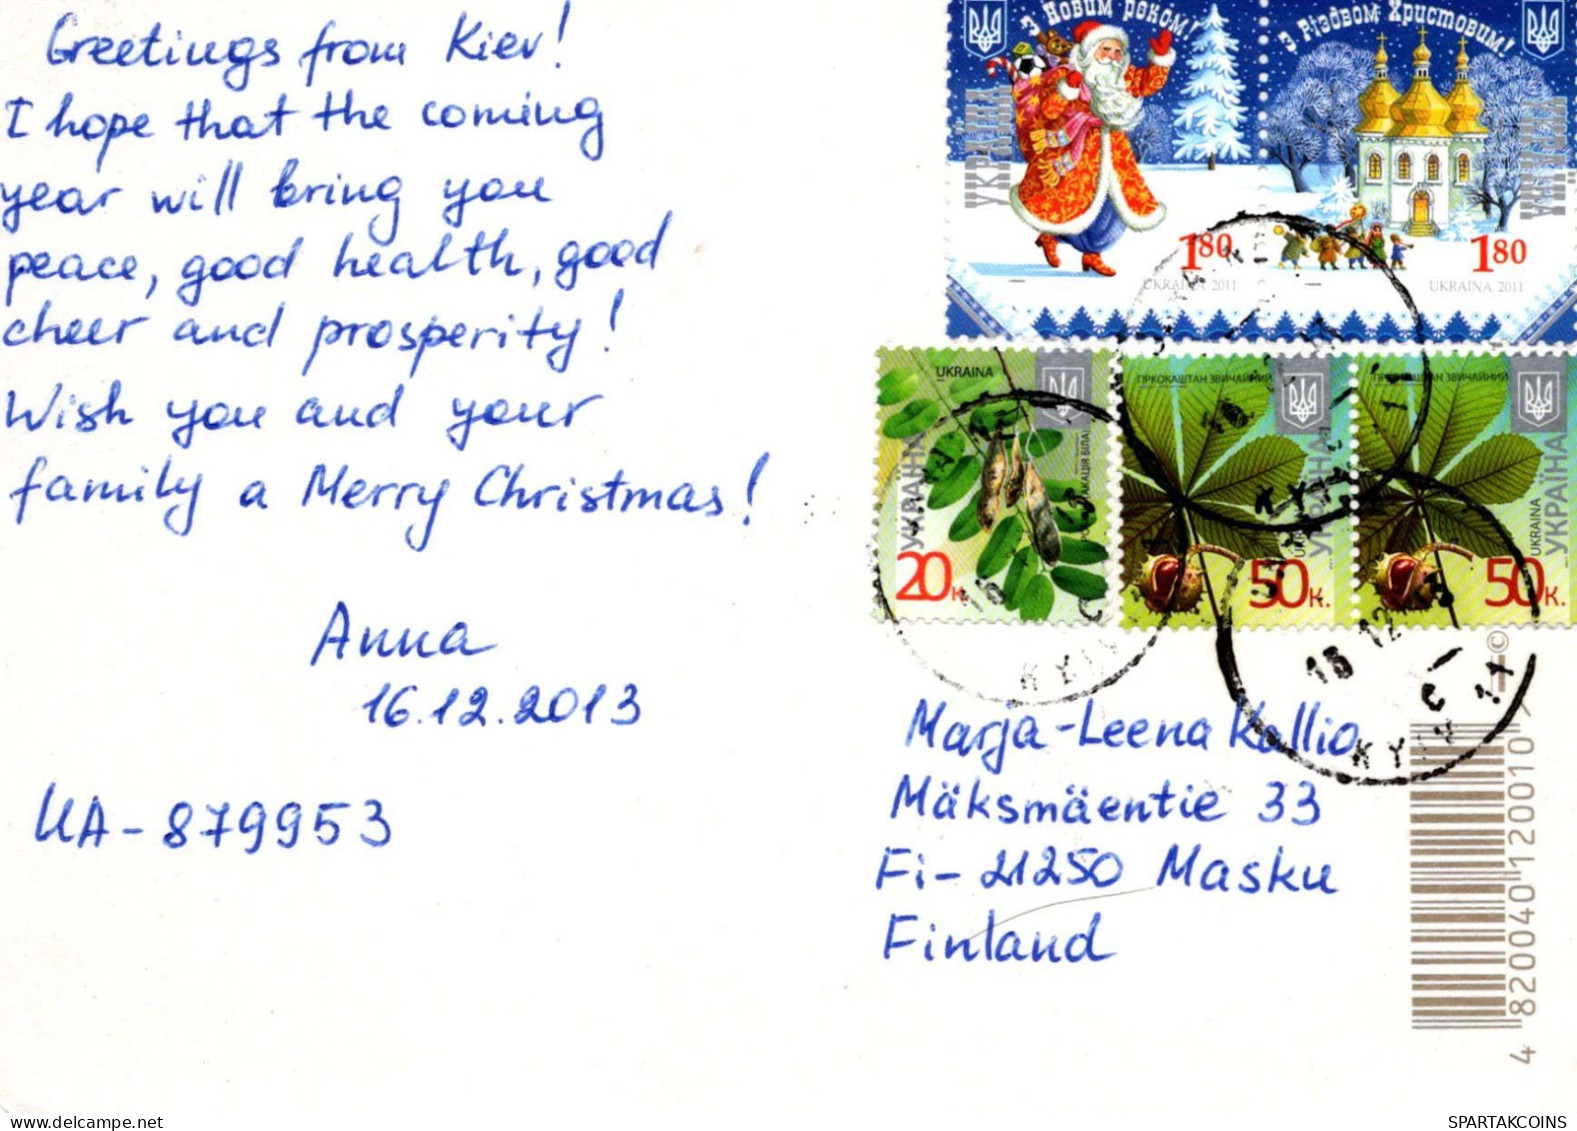 Greetings from Kiev!
I hope that the coming
year will bring you
peace, good health, good
cheer and prosperity!
Wish you and your
family a Merry Christmas!
Anna
16.12.2013
UA-879953
З Новим роком!
З Різдвом Христовим!
УКРАЇНА
УКРАЇНА
1 80
UKRAINA 2011
1 80
UKRAINA 2011
UKRAINA
УКРАЇНА
20 к.
ГІРКОКАШТАН ЗВИЧАЙНИЙ
UKRAINA
УКРАЇНА
50 к.
ГІРКОКАШТАН ЗВИЧАЙНИЙ
UKRAINA
УКРАЇНА
50 к.
KYIV
KYIV
Marja-Leena Kallio
Mäksmäentie 33
Fi-21250 Masku
Finland
4 820040 120010
SPARTAKCOINS
delcampe.net